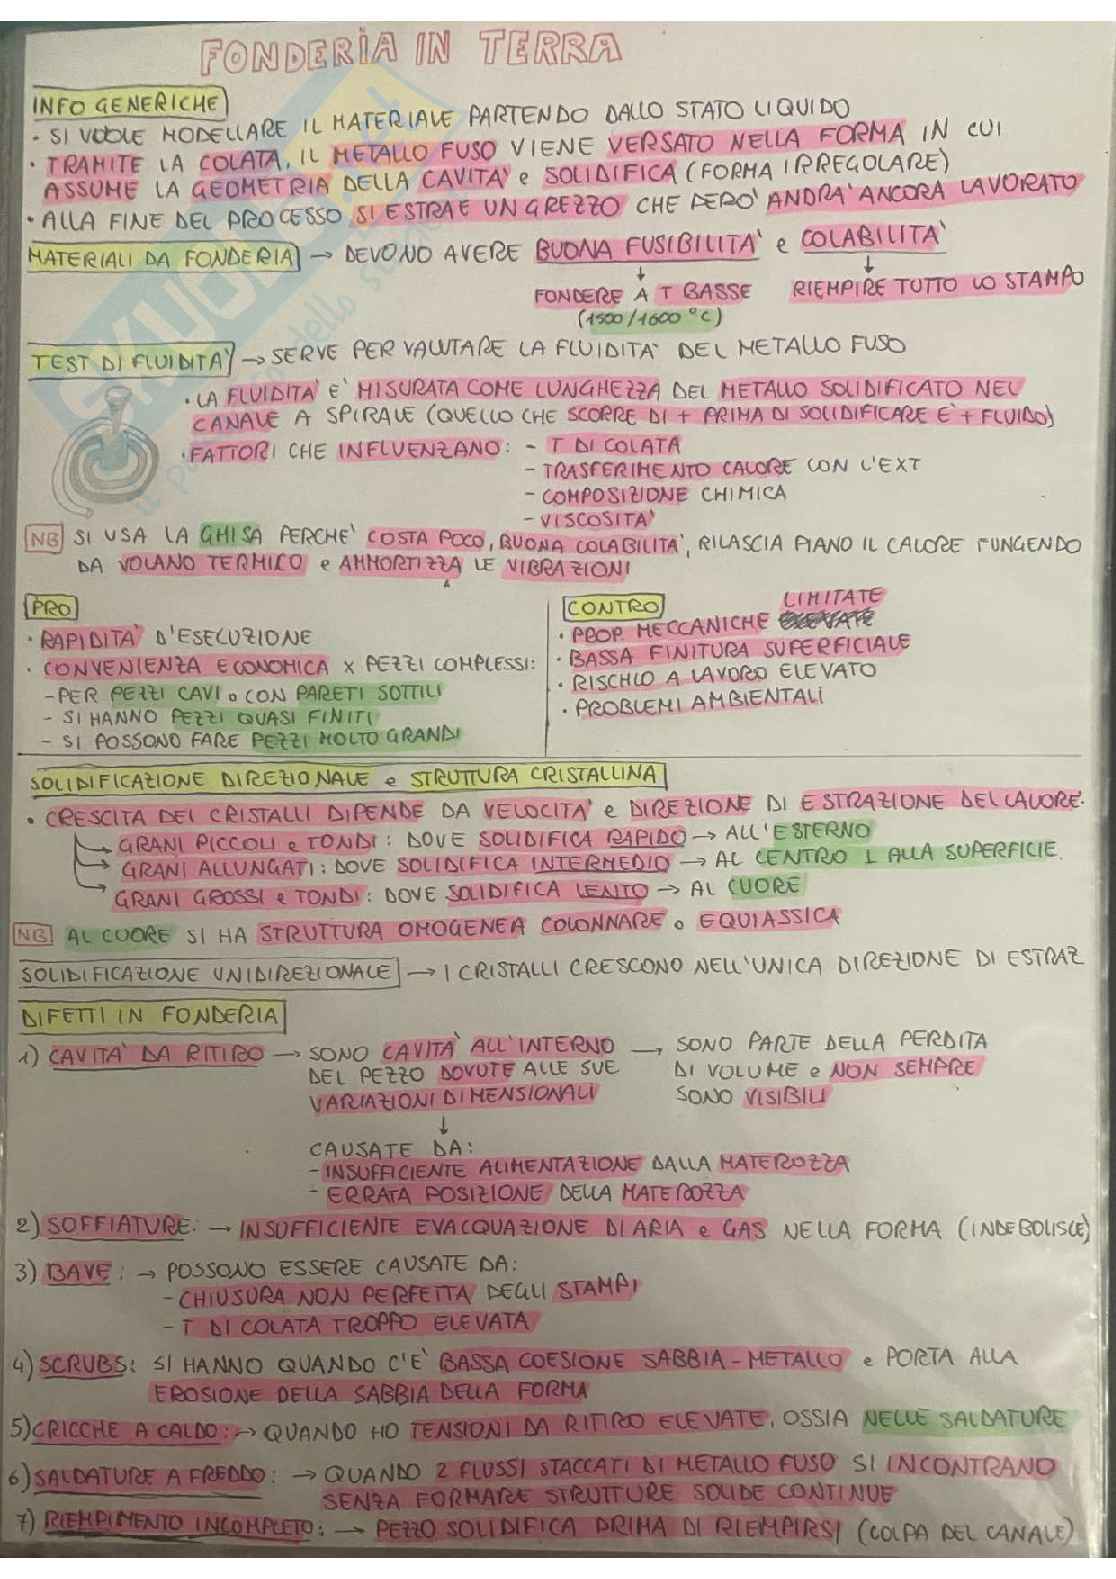 FONDERIA IN TERRA
INFO GENERICHE
· SI VUOLE MODELLARE IL MATERIALE PARTENDO DALLO STATO LIQUIDO
· TRAMITE LA COLATA, IL METALLO FUSO VIENE VERSATO NELLA FORMA IN CUI
ASSUME LA GEOMETRIA DELLA CAVITA' e SOLIDIFICA (FORMA IRREGOLARE)
· ALLA FINE DEL PROCESSO SI ESTRAE UN GREZZO CHE PERO' ANDRA' ANCORA LAVORATO
MATERIALI DA FONDERIA → DEVONO AVERE BUONA FUSIBILITA' e COLABILITA'
↓ ↓
FONDERE A T BASSE RIEMPIRE TUTTO LO STAMPO
(1500/1600 °C)
TEST DI FLUIDITA' → SERVE PER VALUTARE LA FLUIDITA' DEL METALLO FUSO
· LA FLUIDITA' E' MISURATA COME LUNGHEZZA DEL METALLO SOLIDIFICATO NEL
CANALE A SPIRALE (QUELLO CHE SCORRE DI + PRIMA DI SOLIDIFICARE E' + FLUIDO)
· FATTORI CHE INFLUENZANO: - T DI COLATA
- TRASFERIMENTO CALORE CON L'EXT
- COMPOSIZIONE CHIMICA
- VISCOSITA'
NB SI USA LA GHISA PERCHE' COSTA POCO, BUONA COLABILITA', RILASCIA PIANO IL CALORE FUNGENDO
DA VOLANO TERMICO e AMMORTIZZA LE VIBRAZIONI
PRO
· RAPIDITA' D'ESECUZIONE
· CONVENIENZA ECONOMICA x PEZZI COMPLESSI:
- PER PEZZI CAVI o CON PARETI SOTTILI
- SI HANNO PEZZI QUASI FINITI
- SI POSSONO FARE PEZZI MOLTO GRANDI
CONTRO
LIMITATE
· PROP. MECCANICHE
· BASSA FINITURA SUPERFICIALE
· RISCHIO A LAVORO ELEVATO
· PROBLEMI AMBIENTALI
SOLIDIFICAZIONE DIREZIONALE e STRUTTURA CRISTALLINA
· CRESCITA DEI CRISTALLI DIPENDE DA VELOCITA' e DIREZIONE DI ESTRAZIONE DEL CALORE.
→ GRANI PICCOLI e TONDI: DOVE SOLIDIFICA RAPIDO → ALL'ESTERNO
→ GRANI ALLUNGATI: DOVE SOLIDIFICA INTERMEDIO → AL CENTRO ⊥ ALLA SUPERFICIE.
→ GRANI GROSSI e TONDI: DOVE SOLIDIFICA LENTO → AL CUORE
NB AL CUORE SI HA STRUTTURA OMOGENEA COLONNARE o EQUIASSICA
SOLIDIFICAZIONE UNIDIREZIONALE → I CRISTALLI CRESCONO NELL'UNICA DIREZIONE DI ESTRAZ
DIFETTI IN FONDERIA
1) CAVITA' DA RITIRO → SONO CAVITA' ALL'INTERNO → SONO PARTE DELLA PERDITA
DEL PEZZO DOVUTE ALLE SUE DI VOLUME e NON SEMPRE
VARIAZIONI DIMENSIONALI SONO VISIBILI
↓
CAUSATE DA:
- INSUFFICIENTE ALIMENTAZIONE DALLA MATEROZZA
- ERRATA POSIZIONE DELLA MATEROZZA
2) SOFFIATURE: → INSUFFICIENTE EVACQUAZIONE DI ARIA e GAS NELLA FORMA (INDEBOLISCE)
3) BAVE: → POSSONO ESSERE CAUSATE DA:
- CHIUSURA NON PERFETTA DEGLI STAMPI
- T DI COLATA TROPPO ELEVATA
4) SCRUBS: SI HANNO QUANDO C'E' BASSA COESIONE SABBIA-METALLO e PORTA ALLA
EROSIONE DELLA SABBIA DELLA FORMA
5) CRICCHE A CALDO: → QUANDO HO TENSIONI DA RITIRO ELEVATE, OSSIA NELLE SALDATURE
6) SALDATURE A FREDDO: → QUANDO 2 FLUSSI STACCATI DI METALLO FUSO SI INCONTRANO
SENZA FORMARE STRUTTURE SOLIDE CONTINUE
7) RIEMPIMENTO INCOMPLETO: → PEZZO SOLIDIFICA PRIMA DI RIEMPIRSI (COLPA DEL CANALE)